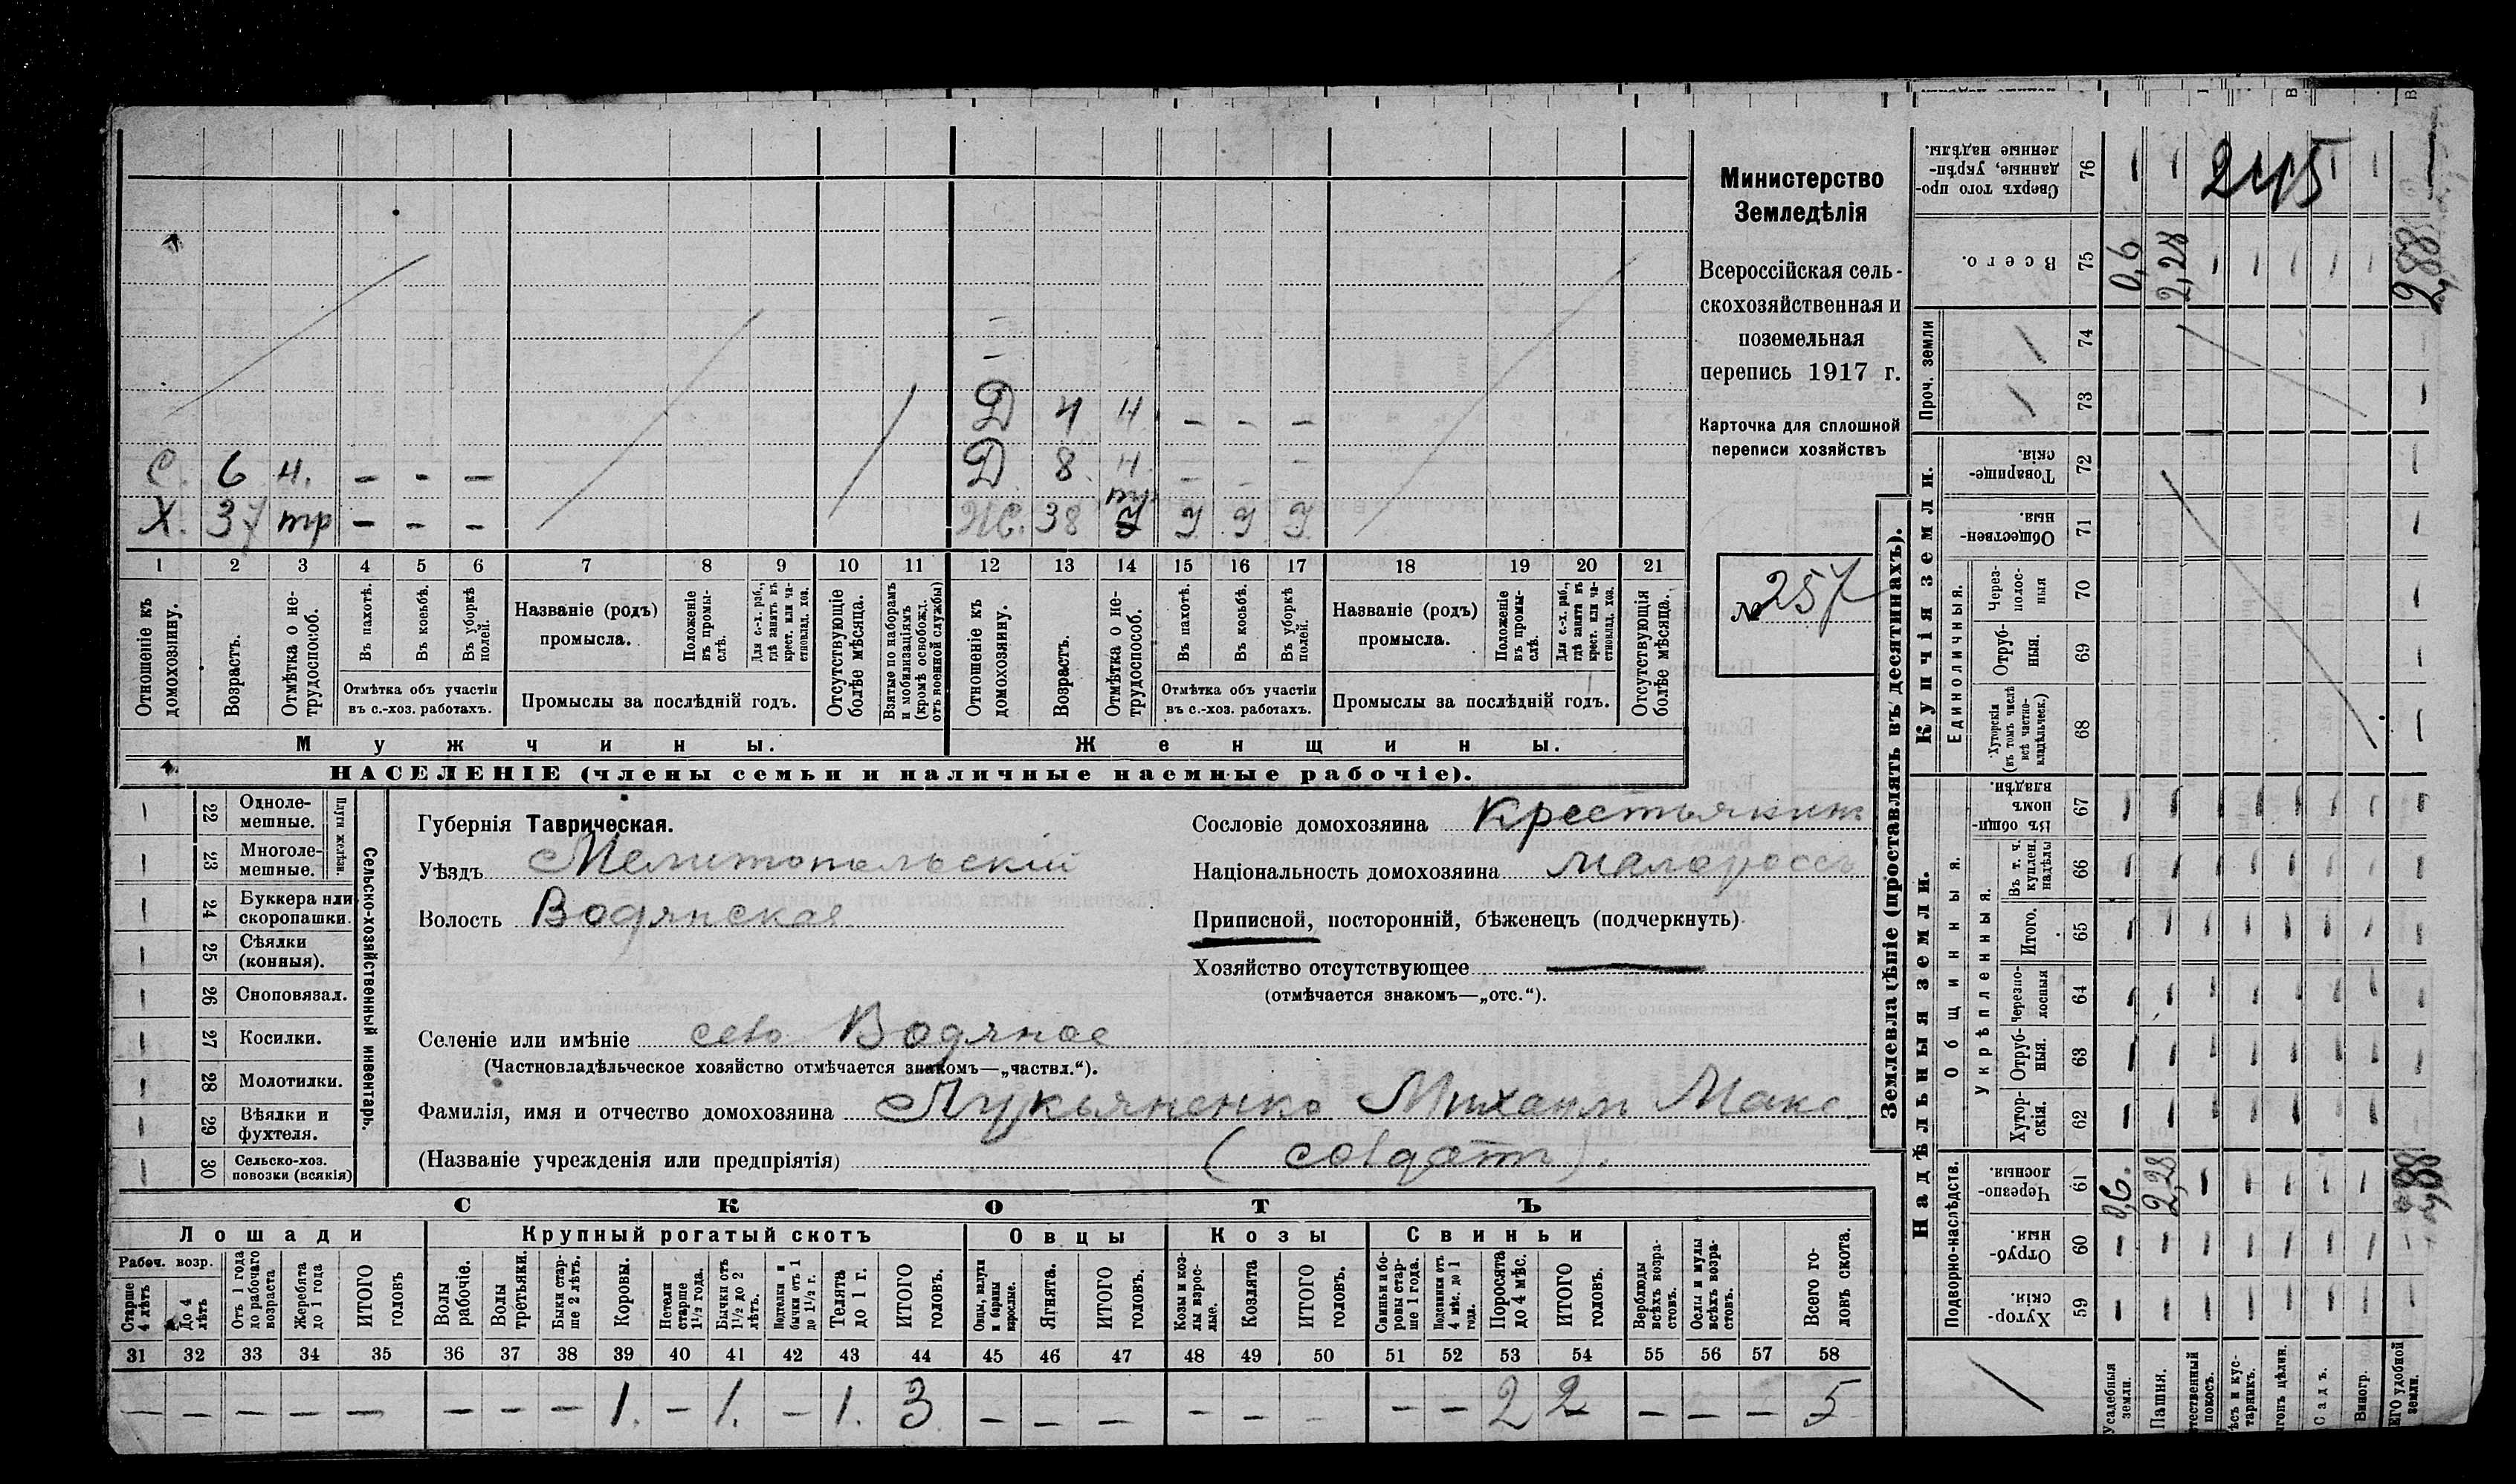 Министерство
Земледѣлія
Всероссійская сель-
скохозяйственная и
поземельная
перепись 1917 г.
Карточка для сплошной
переписи хозяйствъ
№ 257
Д 4 н. – – –
С. 6 н. – – – Д 8. н. – – –
Х. 37 тр – – – Ж. 38 тр У У У У
1 2 3 4 5 6 7 8 9 10 11 12 13 14 15 16 17 18 19 20 21
Отношеніе къ домохозяину.
Возрастъ.
Отмѣтка о не-трудоспособ.
Въ пахотѣ.
Въ косьбѣ.
Въ уборкѣ полей.
Отмѣтка объ участіи
въ с.-хоз. работахъ.
Названіе (родъ)
промысла.
Положеніе въ промы-слѣ.
Для с.-х. раб., гдѣ занятъ въ крест. или ча-стновлад. хоз.
Промыслы за послѣдній годъ.
Отсутствующіе болѣе мѣсяца.
Взятые по наборамъ и мобилизаціямъ (кромѣ освобожд. отъ военной службы)
Отношеніе къ домохозяину.
Возрастъ.
Отмѣтка о не-трудоспособ.
Въ пахотѣ.
Въ косьбѣ.
Въ уборкѣ полей.
Отмѣтка объ участіи
въ с.-хоз. работахъ.
Названіе (родъ)
промысла.
Положеніе въ промы-слѣ.
Для с.-х. раб., гдѣ занятъ въ крест. или ча-стновлад. хоз.
Промыслы за послѣдній годъ.
Отсутствующія болѣе мѣсяца.
Мужчины. Женщины.
НАСЕЛЕНІЕ (члены семьи и наличные наемные рабочіе).
Сельско-хозяйственный инвентарь.
Плуги желѣзн.
22 Одноле-мешные. –
23 Многоле-мешные. –
24 Буккера или скоропашки. –
25 Сѣялки (конныя). –
26 Сноповязал. –
27 Косилки. –
28 Молотилки. –
29 Вѣялки и фухтеля. –
30 Сельско-хоз. повозки (всякія) –
Губернія Таврическая.
Уѣздъ Мелитопольскій
Волость Водянская
Селеніе или имѣніе село Водяное
(Частновладѣльческое хозяйство отмѣчается знакомъ—„частвл.“).
Фамилія, имя и отчество домохозяина Лукьяненко Михаилъ Макс.
(Названіе учрежденія или предпріятія) (солдатъ).
Сословіе домохозяина Крестьянинъ
Національность домохозяина малороссъ
Приписной, посторонній, бѣженецъ (подчеркнуть)
Хозяйство отсутствующее —
(отмѣчается знакомъ—„отс.“).
СКОТЪ
Лошади Крупный рогатый скотъ Овцы Козы Свиньи
Рабоч. возр.
Старше 4 лѣтъ
До 4 лѣтъ
Отъ 1 года до рабочаго возраста
Жеребята до 1 года
ИТОГО головъ
Волы рабочіе.
Волы третьяки.
Быки стар-ше 2 лѣтъ.
Коровы.
Нетели старше 1½ года.
Бычки отъ 1½ до 2 лѣтъ.
Подтелки и бычки отъ 1 до 1½ г.
Телята до 1 г.
ИТОГО головъ.
Овцы, валухи и бараны взрослые.
Ягнята.
ИТОГО головъ.
Козы и коз-лы взрос-лые.
Козлята
ИТОГО головъ.
Свиньи и бо-ровы стар-ше 1 года.
Подсвинки отъ 4 мѣс. до 1 года.
Поросята до 4 мѣс.
ИТОГО головъ.
Верблюды всѣхъ возра-стовъ.
Ослы и мулы всѣхъ возра-стовъ.
Всего го-ловъ скота.
31 32 33 34 35 36 37 38 39 40 41 42 43 44 45 46 47 48 49 50 51 52 53 54 55 56 57 58
– – – – – – – – 1. – 1. – 1. 3 – – – – – – – – 2 2 – – – 5
Землевладѣніе (проставлять въ десятинахъ).
Надѣльныя земли. Купчія земли. Проч. земли
Подворно-наслѣдств.
Общинныя.
Укрѣпленныя.
Единоличныя.
Сверхъ того про-данные, укрѣп-ленные надѣлы. 76 245
Всего. 75 0,6 2,28 2,88
74
73
Товарище-скія 72
Обществен-ныя. 71
Через-полос-ныя 70
Отруб-ныя. 69
Хуторскія (въ томъ числѣ всѣ частно-владѣльческ.) 68
Въ общин-номъ владѣн. 67
Въ т. ч. куплен. надѣлы 66
Итого. 65
Черезпо-лосныя 64
Отруб-ныя. 63
Хутор-скія. 62
Черезпо-лосныя. 61 0,6. 2,28 2,88
Отруб-ныя. 60
Хутор-скія. 59
Усадебныя земли.
Пашня.
тественный покосъ.
ѣсъ и кус-тарникъ.
гонъ цѣлин.
Садъ.
Виногр.
ЕГО удобной земли.